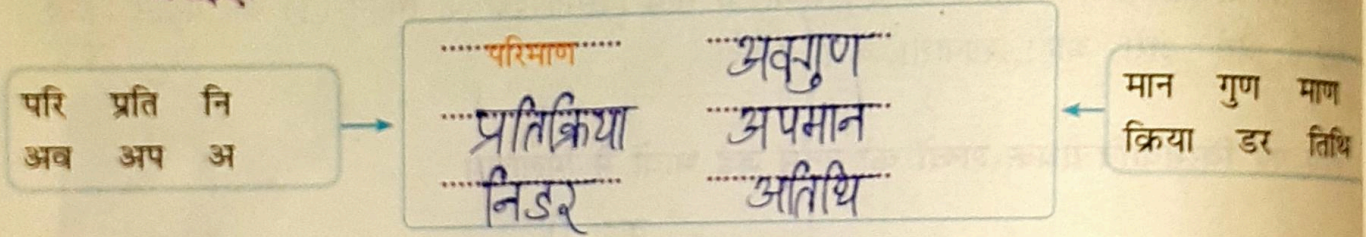 परि प्रति नि
अव अप अ
परिमाण अवगुण
प्रतिक्रिया अपमान
निडर अतिथि
मान गुण माण
क्रिया डर तिथि